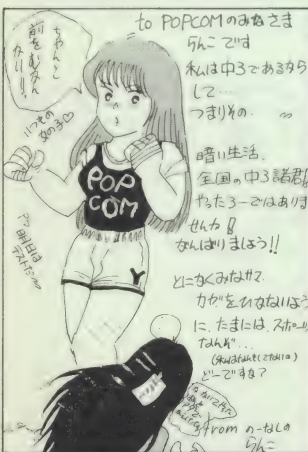 to POPCOMのみなさま
らんこです
私は中3であるからして…
つまりその.
暗い生活.
全国の中3諸君!
やったろーではありませんか!
がんばりましょう!!
とにかくみなサマ
カゼをひかないように、たまには、スポーツ
なんぞ…
(私はなんもしてないの)
どーですか?
from のーなしの
らんこ
ちゃんと
前をむかん
かい!!
いつもの
女の子♡
POP
COM
Y
アァ 明日は
テストだ